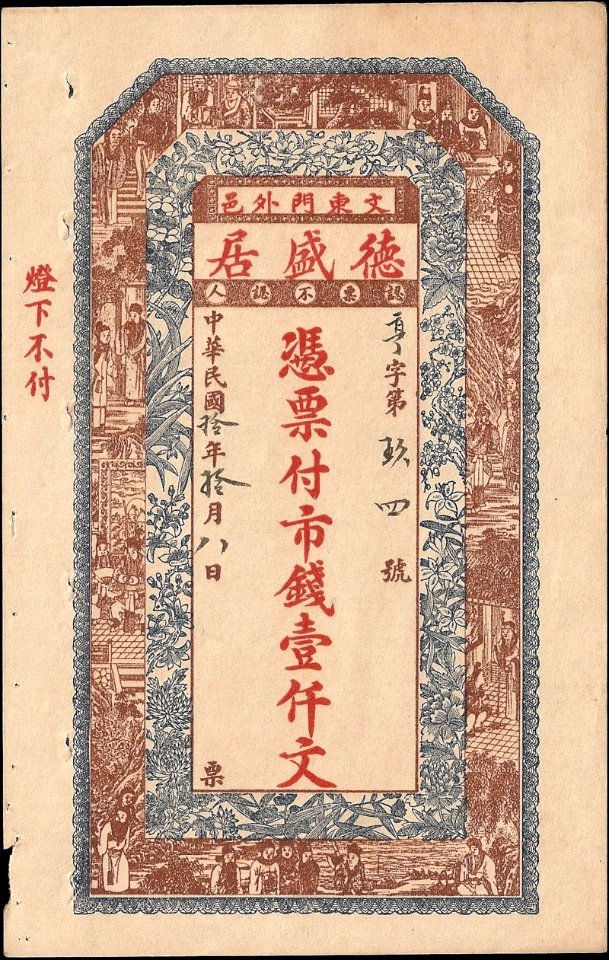 文東門外邑
德盛居
認票不認人
亨字第玖四號
憑票付市錢壹仟文
中華民國拾年拾月八日
票
燈下不付